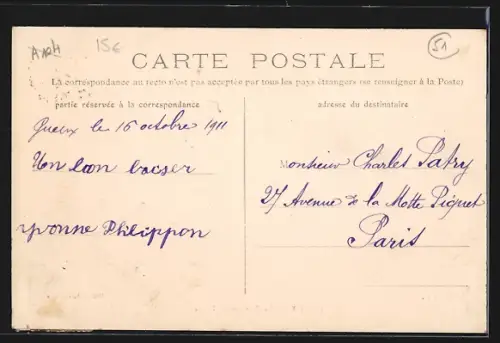 A104
15€
51
CARTE POSTALE
La correspondance au recto n'est pas acceptée par tous les pays étrangers (se renseigner à la Poste)
partie réservée à la correspondance
adresse du destinataire
Queux le 16 octobre 1911
Un bon baeser
Yvonne Philippon
Monsieur Charles Patry
27 Avenue de la Motte Piquet
Paris